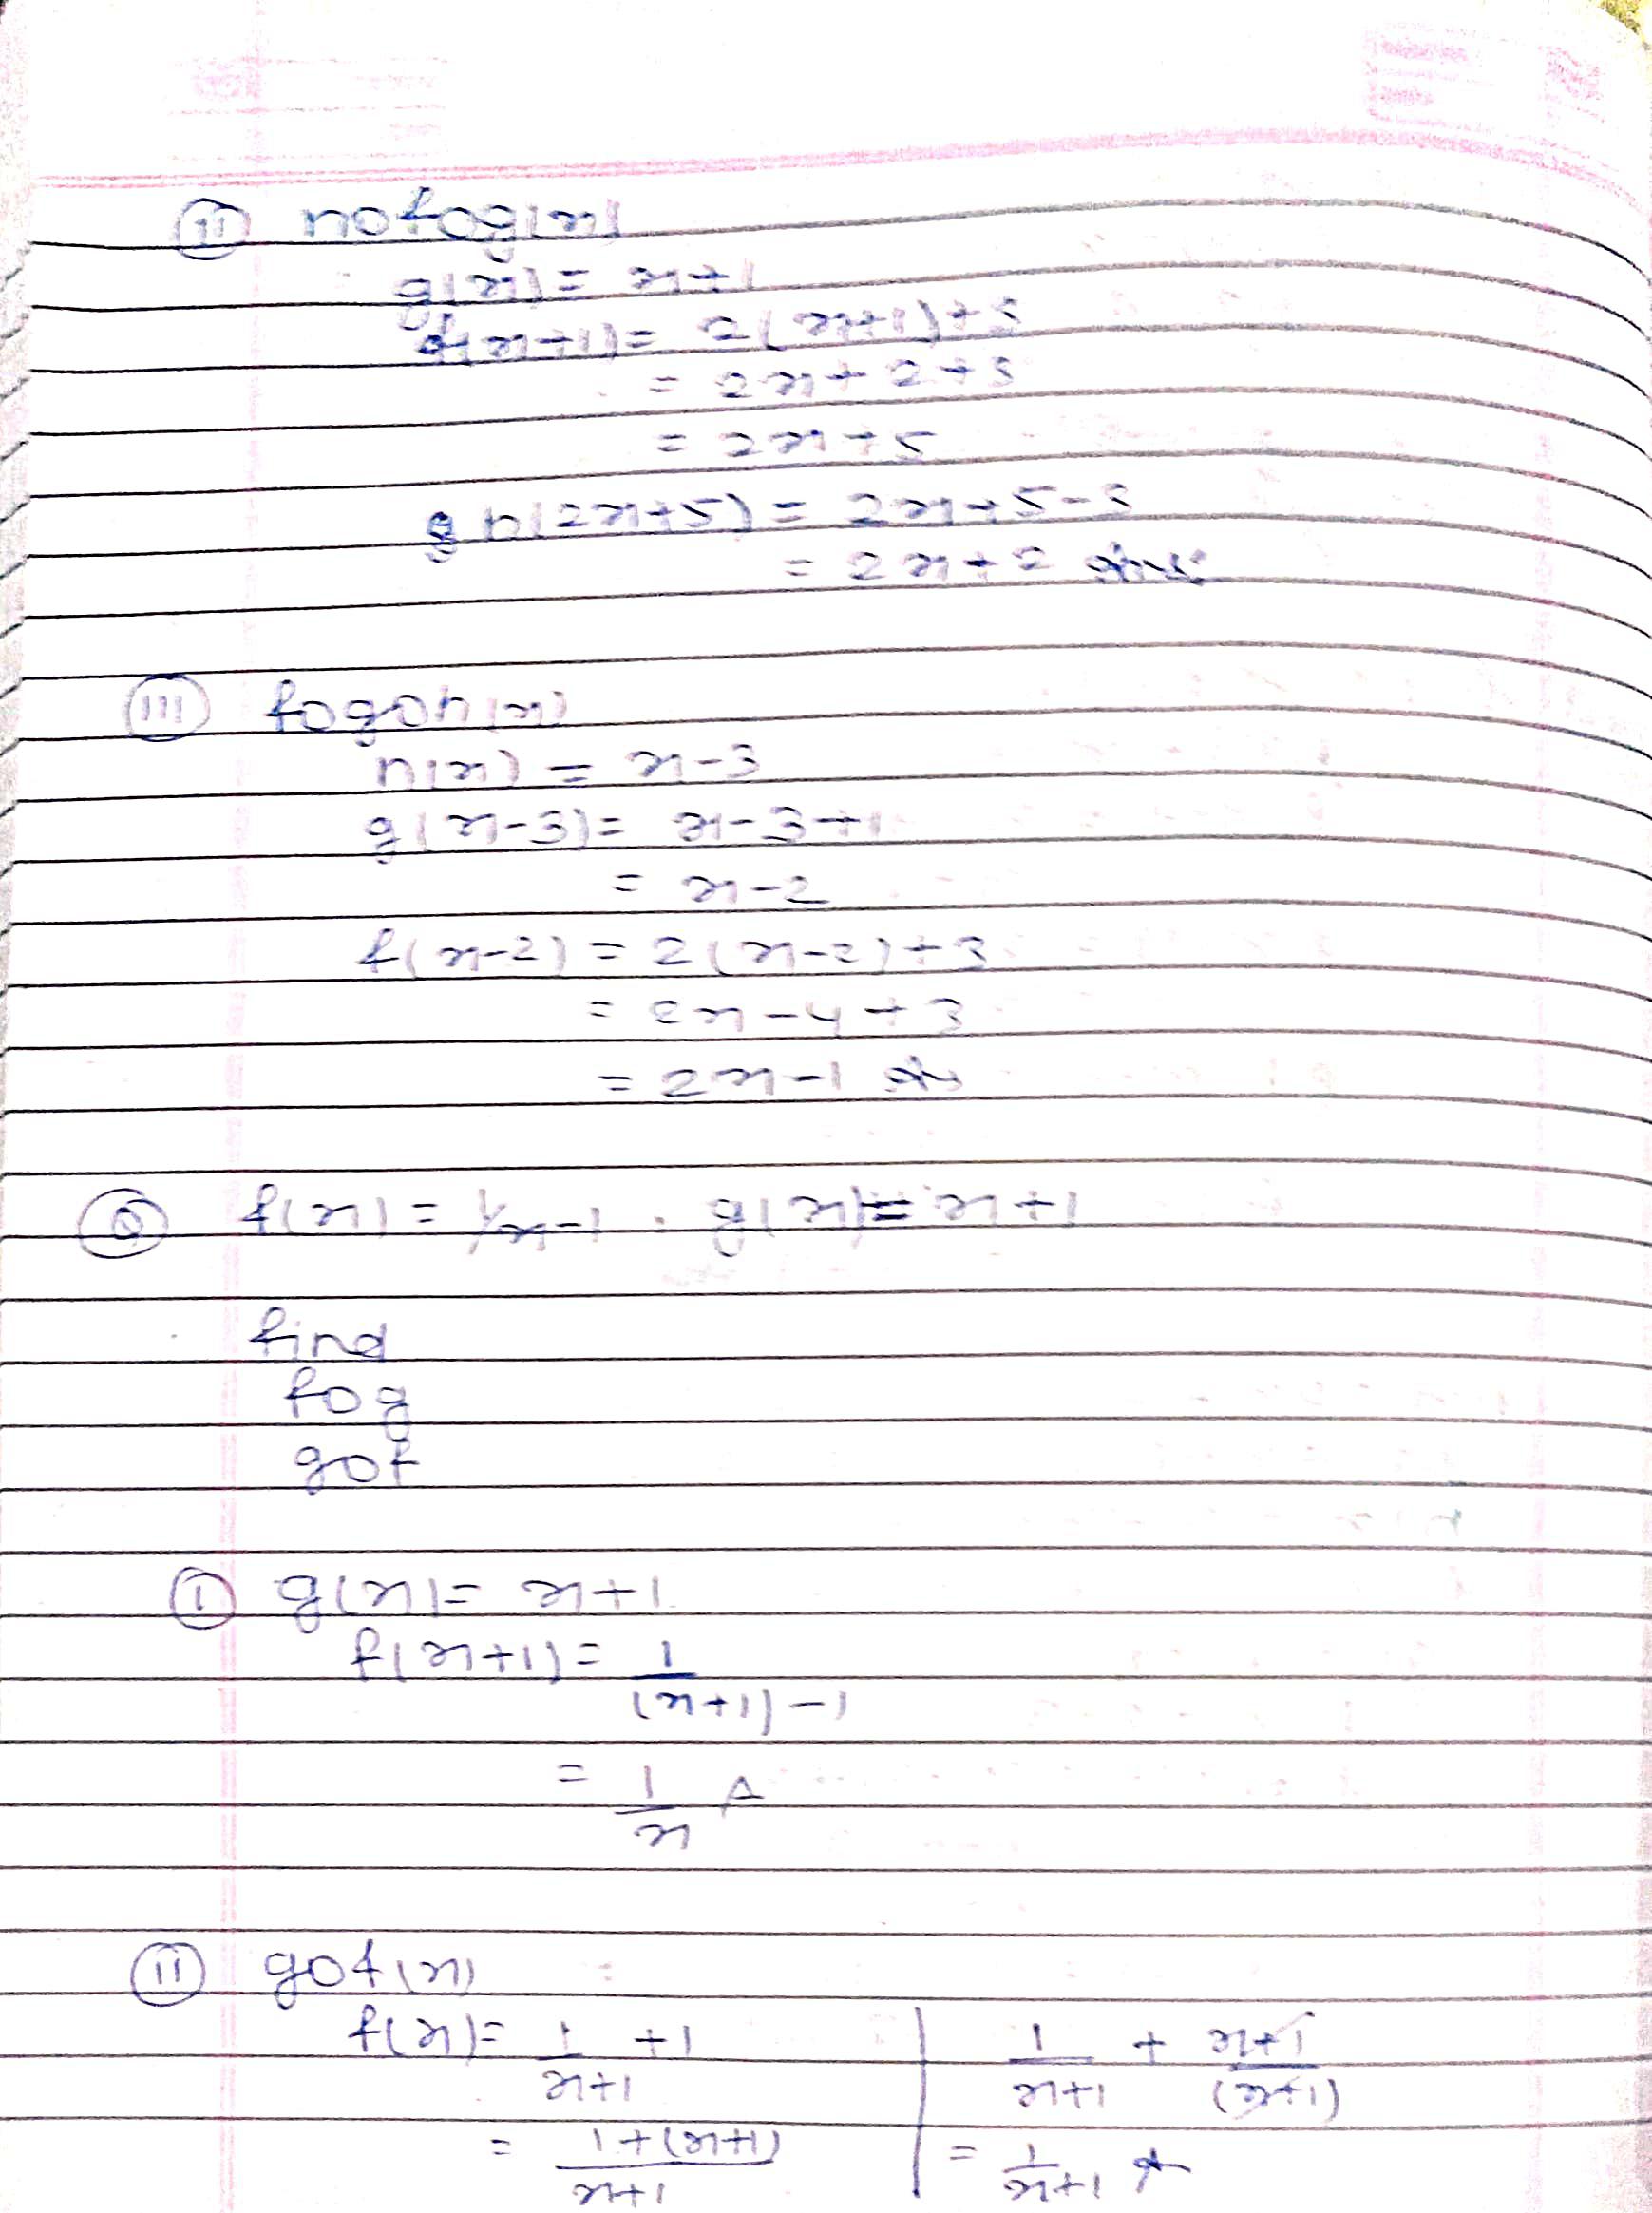 (ii) hofog(x)
g(x) = x+1
f(x+1) = 2(x+1)+3
= 2x+2+3
= 2x+5
h(2x+5) = 2x+5-3
= 2x+2 Ans
(iii) fogoh(x)
h(x) = x-3
g(x-3) = x-3+1
= x-2
f(x-2) = 2(x-2)+3
= 2x-4+3
= 2x-1 Ans
(Q) f(x) = 1/x-1 . g(x) = x+1
find
fog
gof
(i) g(x) = x+1
f(x+1) = 1/(x+1)-1
= 1/x A
(ii) gof(x)
f(x) = 1/x+1 +1
= 1+(x+1)/x+1
1/x+1 + x+1/(x+1)
= 1/x+1 A